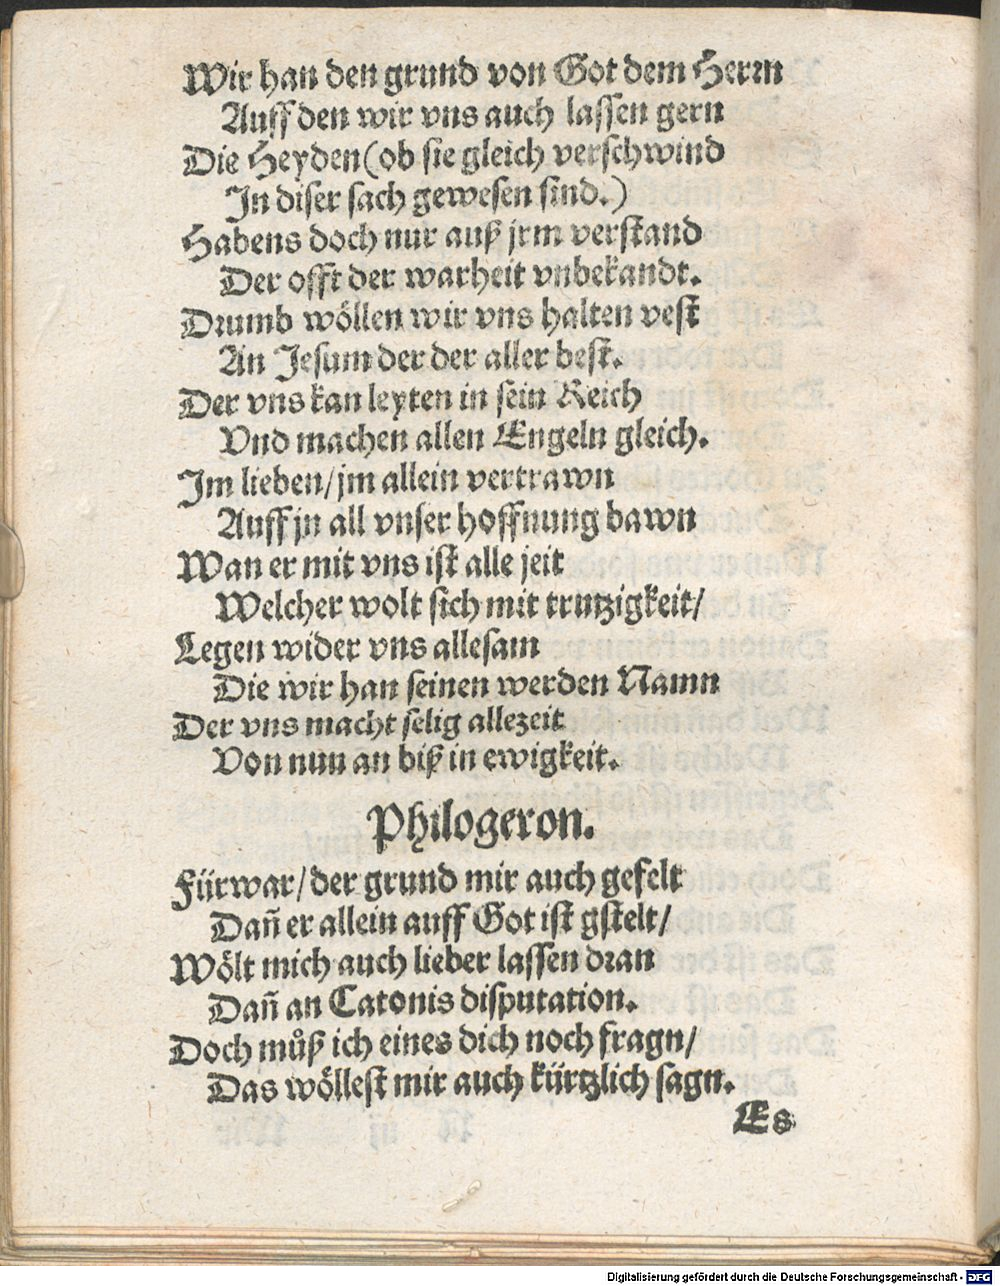 Wir han den grund von Got dem Herrn
Auff den wir vns auch lassen gern
Die Heyden (ob sie gleich verschwind
In diser sach gewesen sind.)
Habens doch nur auß jrm verstand
Der offt der warheit vnbekandt.
Drumb wöllen wir vns halten vest
An Jesum der der aller best.
Der vns kan leyten in sein Reich
Vnd machen allen Engeln gleich.
Im lieben/ jm allein vertrawn
Auff jn all vnser hoffnung bawn
Wan er mit vns ist alle jeit
Welcher wolt sich mit trutzigkeit/
Legen wider vns allesam
Die wir han seinen werden Namn
Der vns macht selig allezeit
Von nun an biß in ewigkeit.
Philogeron.
Fürwar/ der grund mir auch gefelt
Dañ er allein auff Got ist gstelt/
Wölt mich auch lieber lassen dran
Dañ an Catonis disputation.
Doch můß ich eines dich noch fragn/
Das wöllest mir auch kürtzlich sagn.
Es
Digitalisierung gefördert durch die Deutsche Forschungsgemeinschaft - DFG